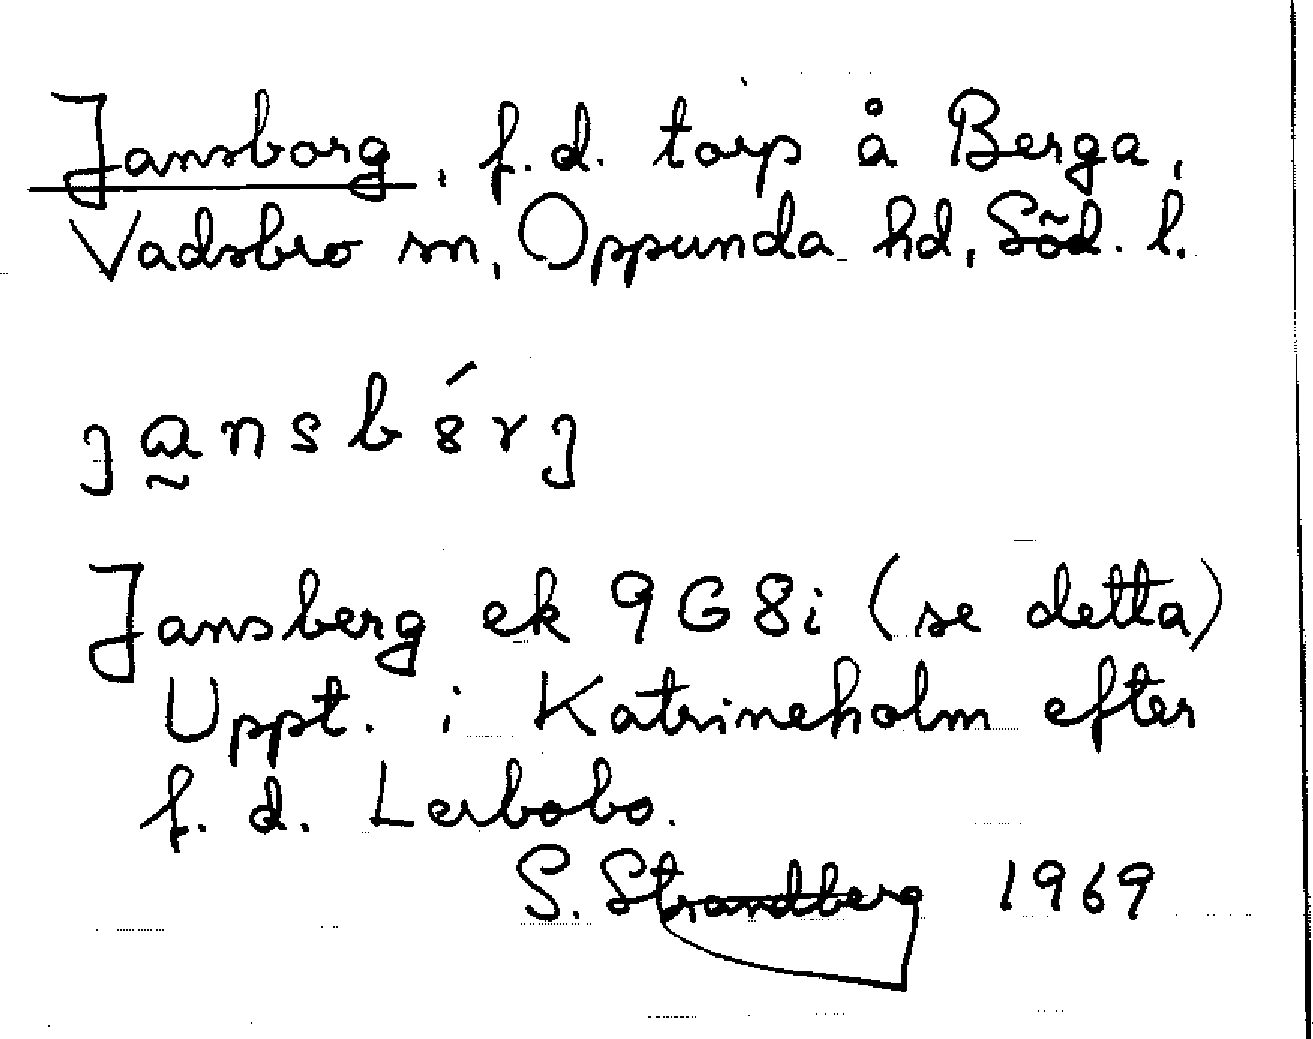 Jansborg, f.d. torp å Berga,
Vadsbro sn, Oppunda hd, Söd. l.
Jansberg ek 9G8i (se detta)
Uppt. i Katrineholm efter
f. d. Lerbobo.
S. Strandberg 1969